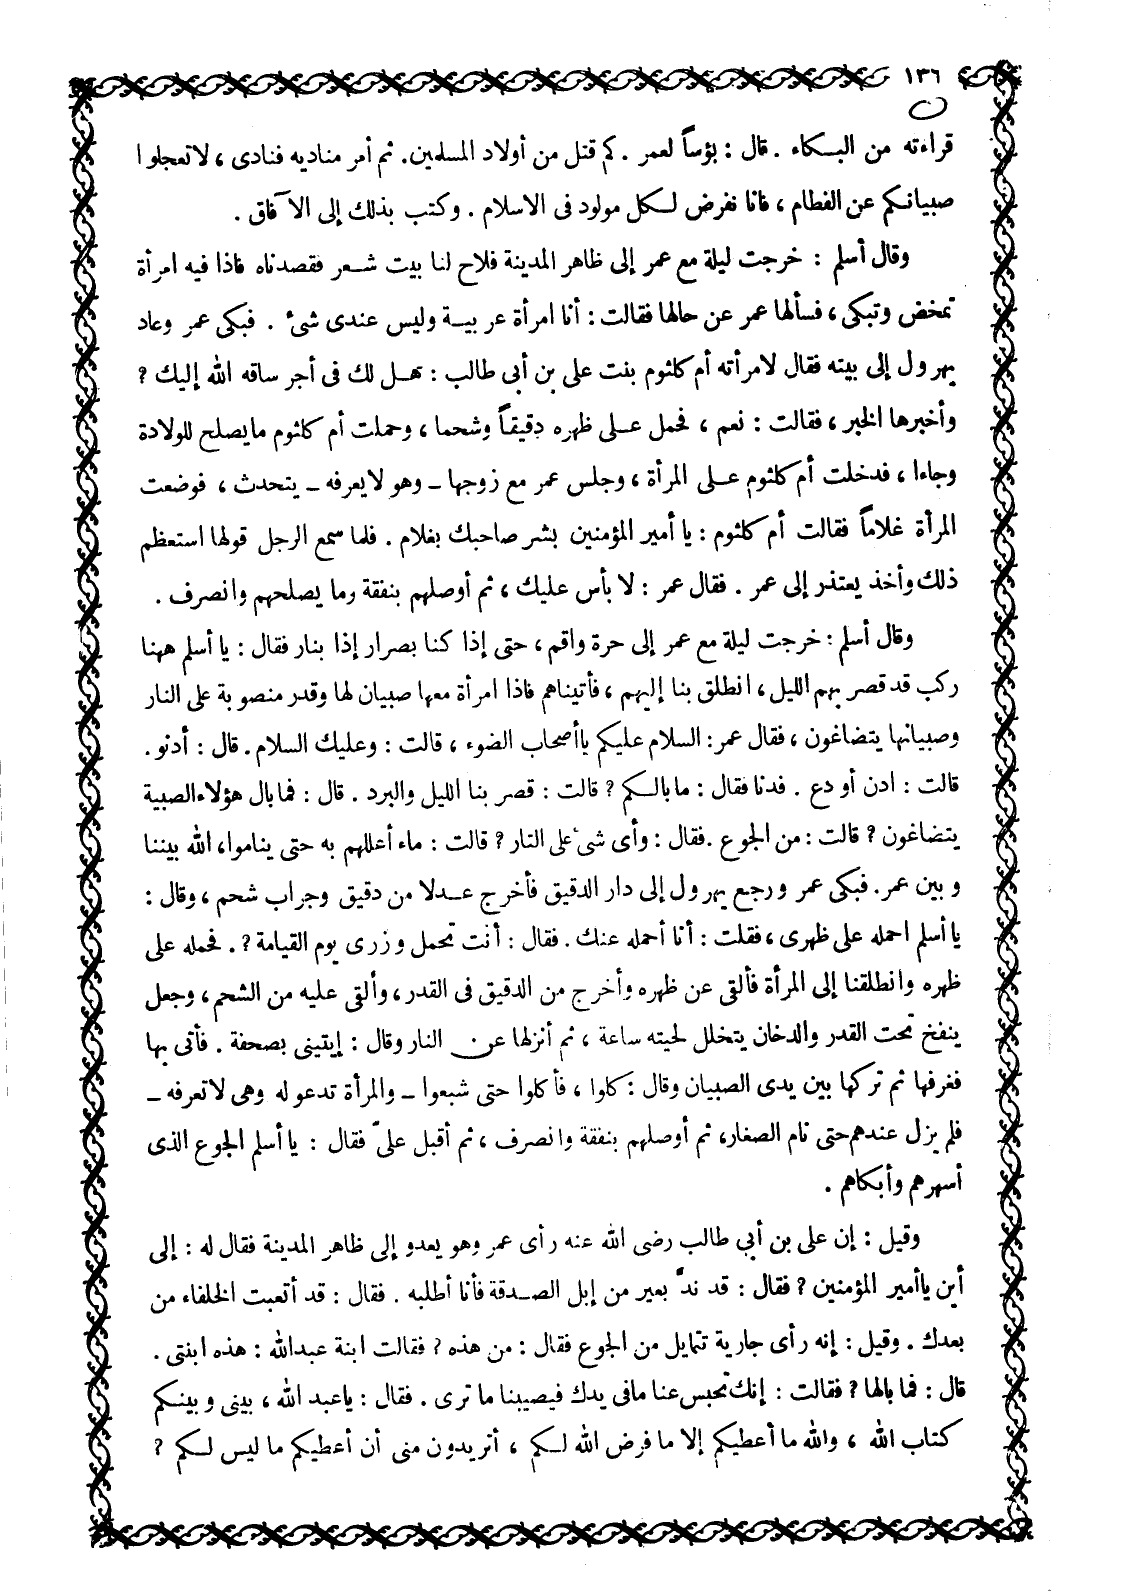 ١٣٦
قراءته من البكاء . قال : بؤساً لعمر . كم قتل من أولاد المسلمين. ثم أمر مناديه فنادى ، لاتعجلوا
صبيانكم عن الفطام ، فانا نفرض لكل مولود فى الاسلام . وكتب بذلك إلى الآفاق .
وقال أسلم : خرجت ليلة مع عمر إلى ظاهر المدينة فلاح لنا بيت شعر فقصدناه فاذا فيه امرأة
تمخض وتبكى ، فسألها عمر عن حالها فقالت : أنا امرأة عربية وليس عندى شىء . فبكى عمر وعاد
يهرول إلى بيته فقال لامرأته أم كلثوم بنت على بن أبى طالب : هل لك فى أجر ساقه الله إليك ?
وأخبرها الخبر ، فقالت : نعم ، فحمل على ظهره دقيقاً وشحما ، وحملت أم كلثوم مايصلح للولادة
وجاءا ، فدخلت أم كلثوم على المرأة ، وجلس عمر مع زوجها ـ وهو لايعرفه ـ يتحدث ، فوضعت
المرأة غلاماً فقالت أم كلثوم : يا أمير المؤمنين بشر صاحبك بغلام . فلما سمع الرجل قولها استعظم
ذلك وأخذ يعتذر إلى عمر . فقال عمر : لا بأس عليك ، ثم أوصلهم بنفقة وما يصلحهم وانصرف .
وقال أسلم : خرجت ليلة مع عمر إلى حرة واقم ، حتى إذا كنا بصرار إذا بنار فقال : يا أسلم ههنا
ركب قد قصر بهم الليل ، انطلق بنا إليهم ، فأتيناهم فاذا امرأة معها صبيان لها وقدر منصوبة على النار
وصبيانها يتضاغون ، فقال عمر : السلام عليكم ياأصحاب الضوء ، قالت : وعليك السلام . قال : أدنو .
قالت : ادن أو دع . فدنا فقال : مابالكم ? قالت : قصر بنا الليل والبرد . قال : فمابال هؤلاء الصبية
يتضاغون ? قالت : من الجوع . فقال : وأى شىء على النار ? قالت : ماء أعللهم به حتى يناموا، الله بيننا
وبين عمر. فبكى عمر ورجع يهرول إلى دار الدقيق فأخرج عدلا من دقيق وجراب شحم ، وقال :
يا أسلم احمله على ظهرى ، فقلت : أنا أحمله عنك . فقال : أنت تحمل وزرى يوم القيامة ? . فحمله على
ظهره وانطلقنا إلى المرأة فألقى عن ظهره وأخرج من الدقيق فى القدر، وألقى عليه من الشحم ، وجعل
ينفخ تحت القدر والدخان يتخلل لحيته ساعة ، ثم أنزلها عن النار وقال : إيتينى بصحفة . فأتى بها
فغرفها ثم تركها بين يدى الصبيان وقال : كلوا ، فأكلوا حتى شبعوا ـ والمرأة تدعو له وهى لاتعرفه ـ
فلم يزل عندهم حتى نام الصغار، ثم أوصلهم بنفقة وانصرف ، ثم أقبل علىّ فقال : يا أسلم الجوع الذى
أسهرهم وأبكاهم .
وقيل : إن على بن أبى طالب رضى الله عنه رأى عمر وهو يعدو إلى ظاهر المدينة فقال له : إلى
أين ياأمير المؤمنين ? فقال : قد ندّ بعير من إبل الصدقة فأنا أطلبه . فقال : قد أتعبت الخلفاء من
بعدك . وقيل : إنه رأى جارية تتمايل من الجوع فقال : من هذه ? فقالت ابنة عبدالله : هذه ابنتى .
قال : فما بالها ? فقالت : إنك تحبس عنا مافى يدك فيصيبنا ما ترى . فقال : ياعبد الله ، بينى وبينكم
كتاب الله ، والله ما أعطيكم إلا ما فرض الله لكم ، أتريدون منى أن أعطيكم ما ليس لكم ?